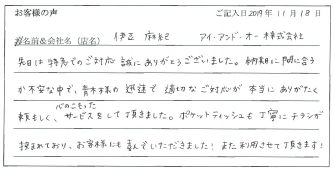 お客様の声 ご記入日2019年11月18日
お名前&会社名(店名) 伊匹 麻紀 アイ・アンド・オー株式会社
先日は特急でのご対応 誠にありがとうございました。納期に間に合う
か不安な中で、青木様の迅速で適切なご対応が本当にありがたく
頼もしく、心のこもったサービスをして頂きました。ポケットティッシュも丁寧にチラシが
挟まれており、お客様にも喜んでいただきました!また利用させて頂きます!